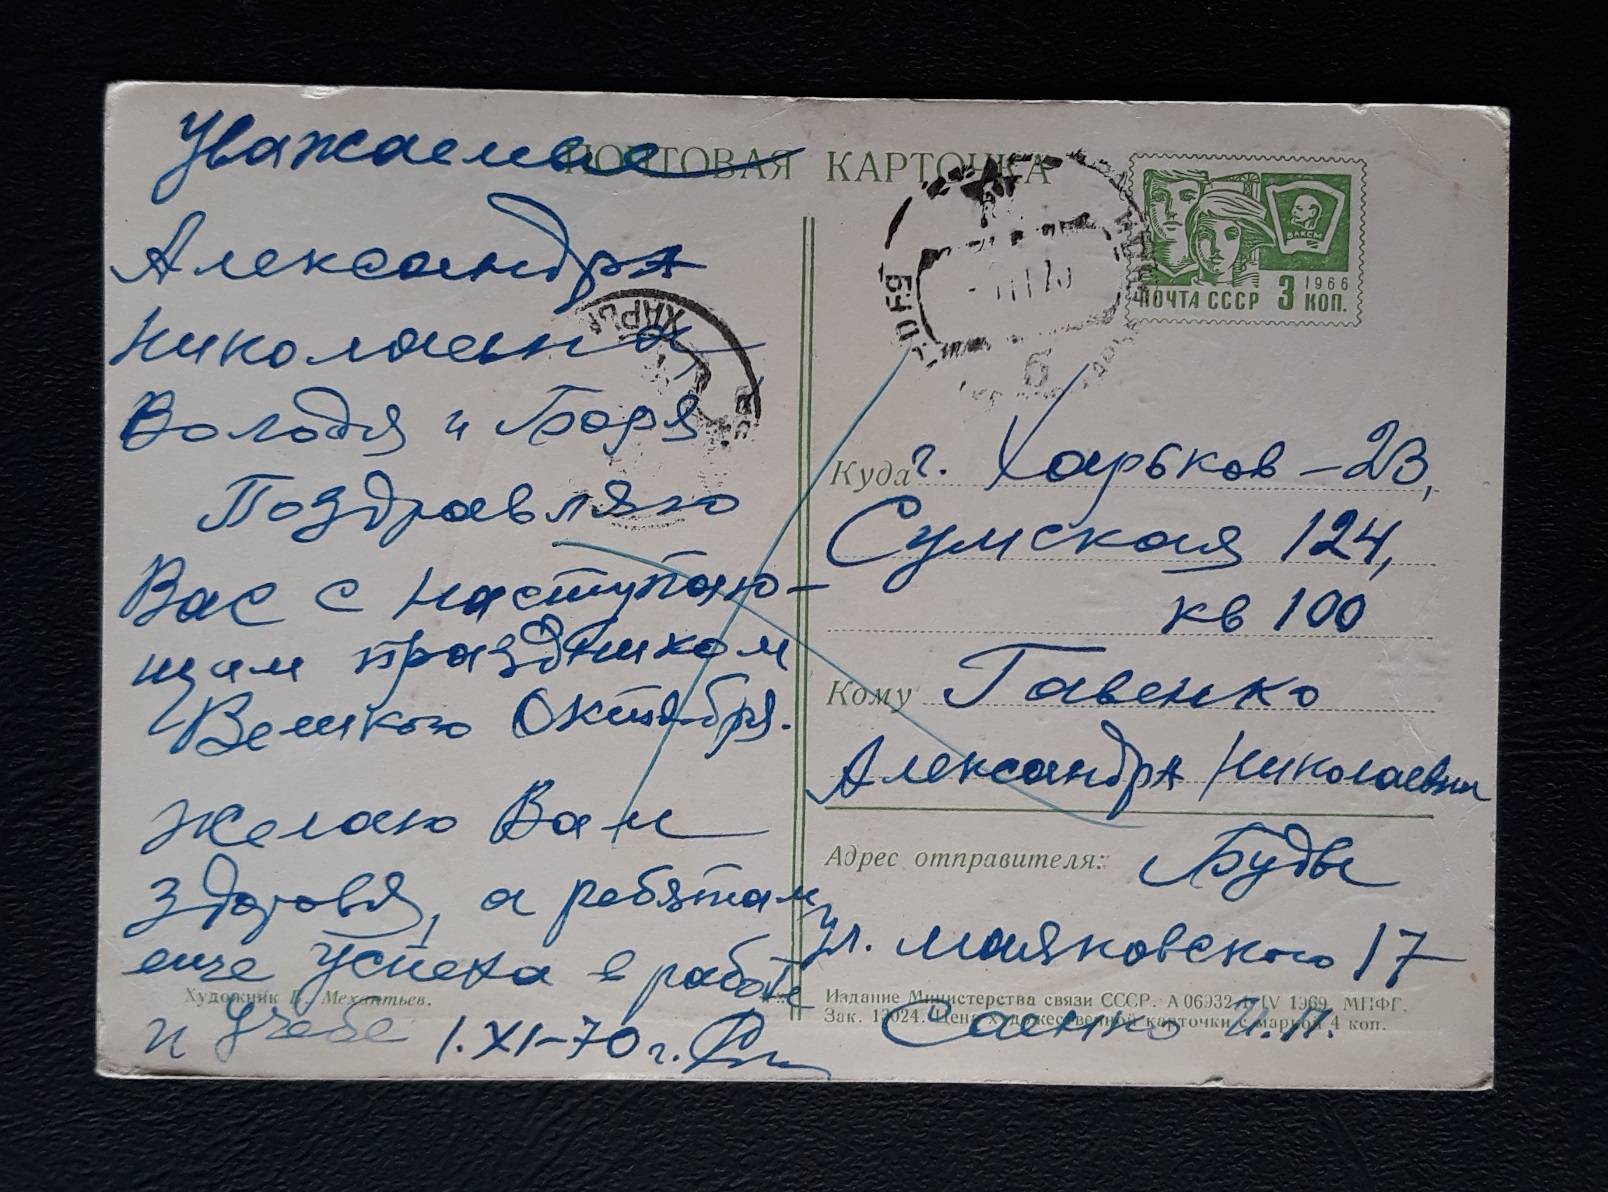 ПОЧТОВАЯ КАРТОЧКА
Уважаемые
Александра
Николаевна
Володя и Боря
Поздравляю
Вас с наступаю-
щим праздником
Великого Октября.
Желаю Вам
здоровья, а ребятам
еще успеха в работе
и учебе 1.XI-70 г.
Художник В. Механтьев.
ВЛКСМ
1966
ПОЧТА СССР 3 КОП.
ХАРЬК
б
Куда г. Харьков-23,
Сумская 124,
кв 100
Кому Гавенко
Александра Николаевна
Адрес отправителя: Буды
ул. Маяковского 17
Саенко И.П.
Издание Министерства связи СССР. А 06932 IV 1969. МПФГ.
Зак. 12024. Цена художественной карточки с маркой 4 коп.